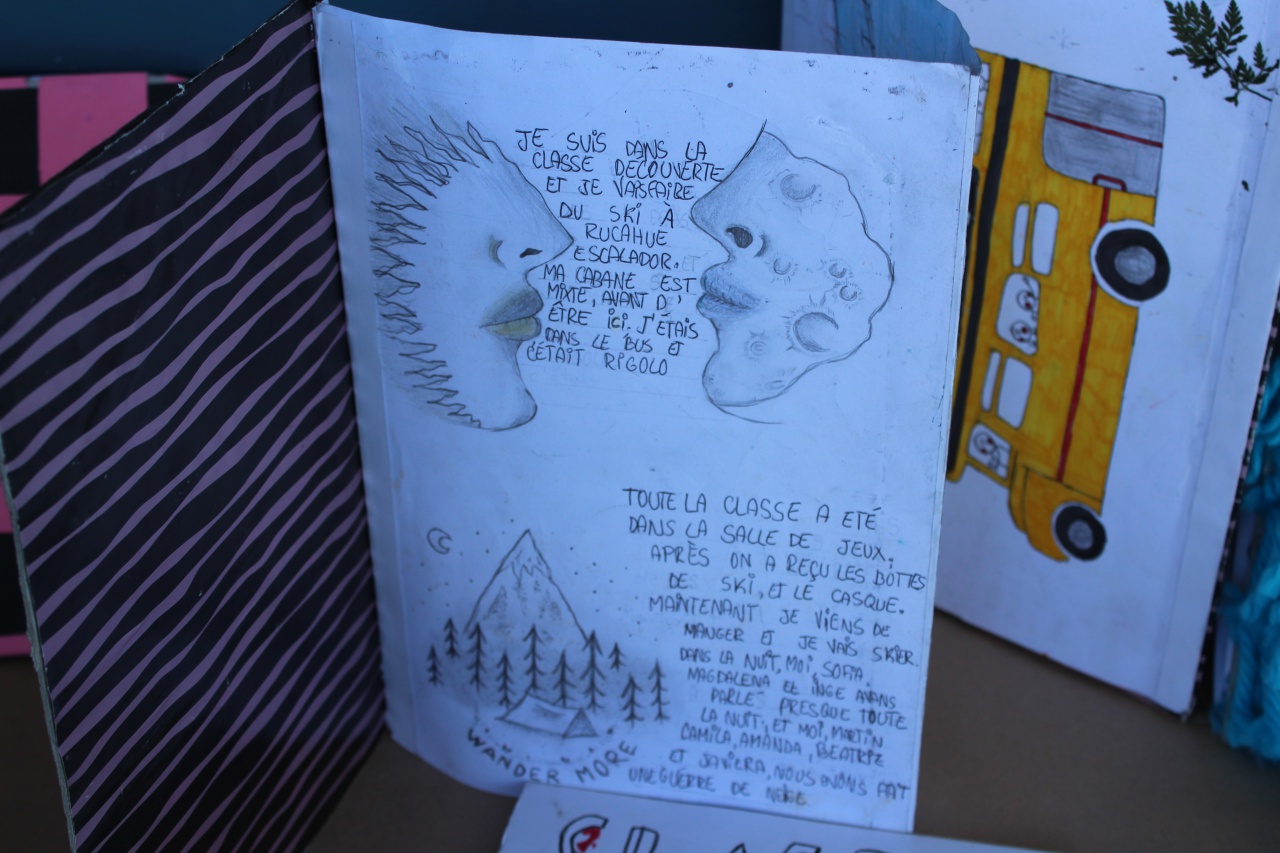 JE SUIS DANS LA
CLASSE DECOUVERTE
ET JE VAISFAIRE
DU SKI À
RUCAHUE
ESCALADOR.
MA CABANE EST
MIXTE, AVANT D'
ÊTRE ici. J'ÉTAIS
DANS LE BUS ET
C'ÉTAIT RIGOLO
TOUTE LA CLASSE A ETÉ
DANS LA SALLE DE JEUX.
APRÈS ON A REÇU LES BOTTES
DE SKI, ET LE CASQUE.
MAINTENANT JE VIENS DE
MANGER ET JE VAIS SKIER.
DANS LA NUIT, MOI, SOFIA,
MAGDALENA ET INGE AVANS
PARLÉ PRESQUE TOUTE
LA NUIT; ET MOI, MARTIN
CAMILA, AMANDA, BEATRIZ
ET JAVIERA, NOUS AVONS FAIT
UNE GUERRE DE NEIGE.
WANDER MORE